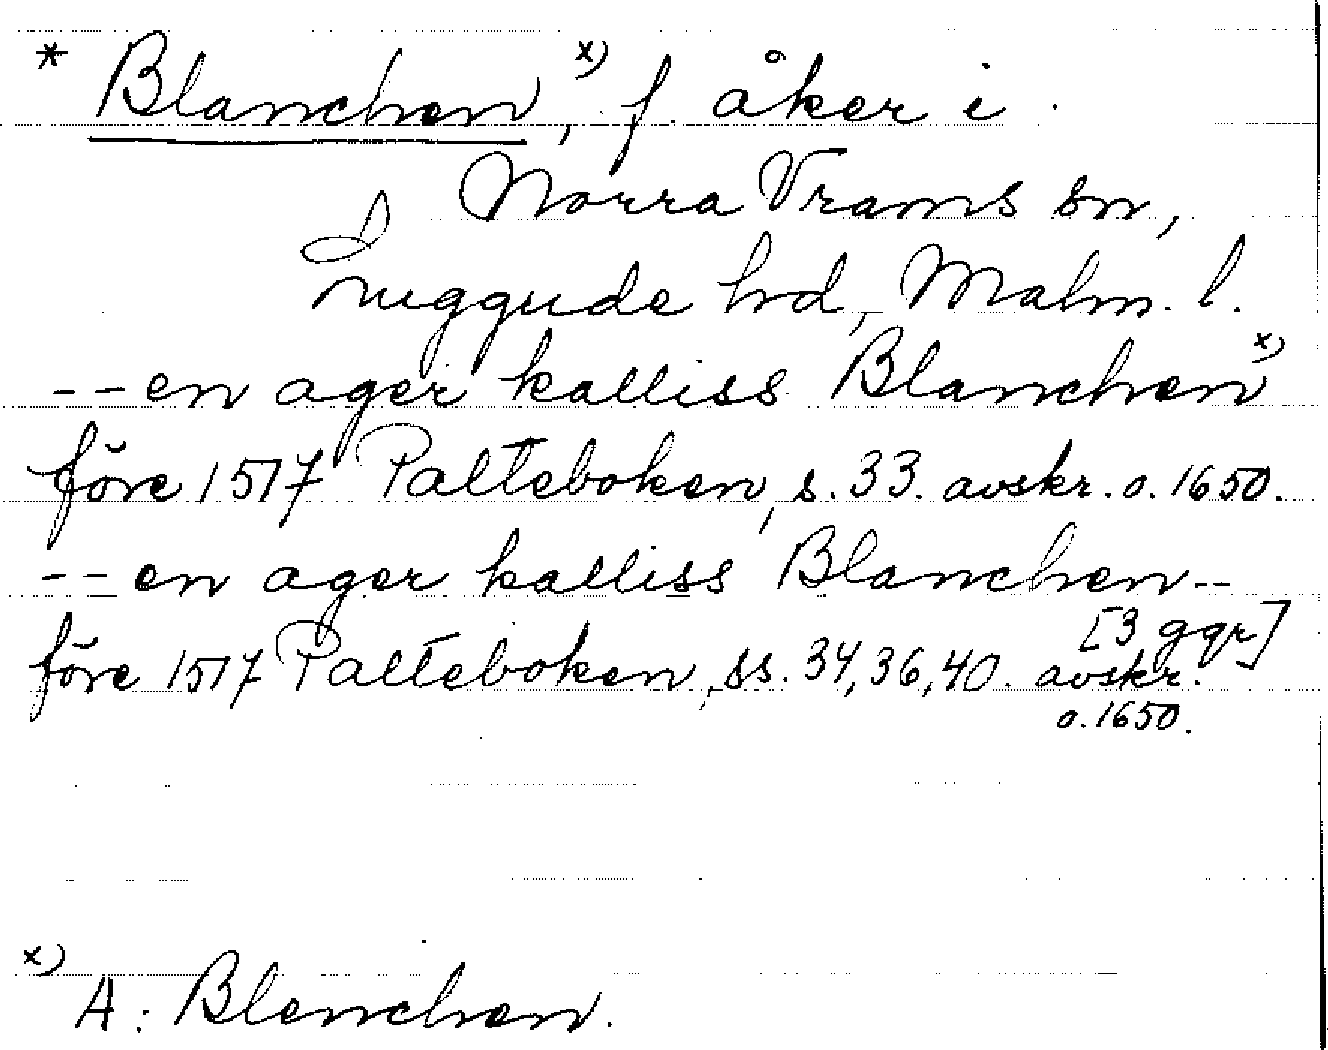 * Blanchen,ˣ⁾ f. åker i
Norra Vrams sn,
Luggude hd, Malm. l.
-- en ager kalliss Blanchenˣ⁾
före 1517 Palteboken, s. 33. avskr. o. 1650.
-- en ager kalliss Blanchen --
[3 ggr]
före 1517 Palteboken, ss. 34, 36, 40. avskr.
o. 1650.
x) A: Blenchen.